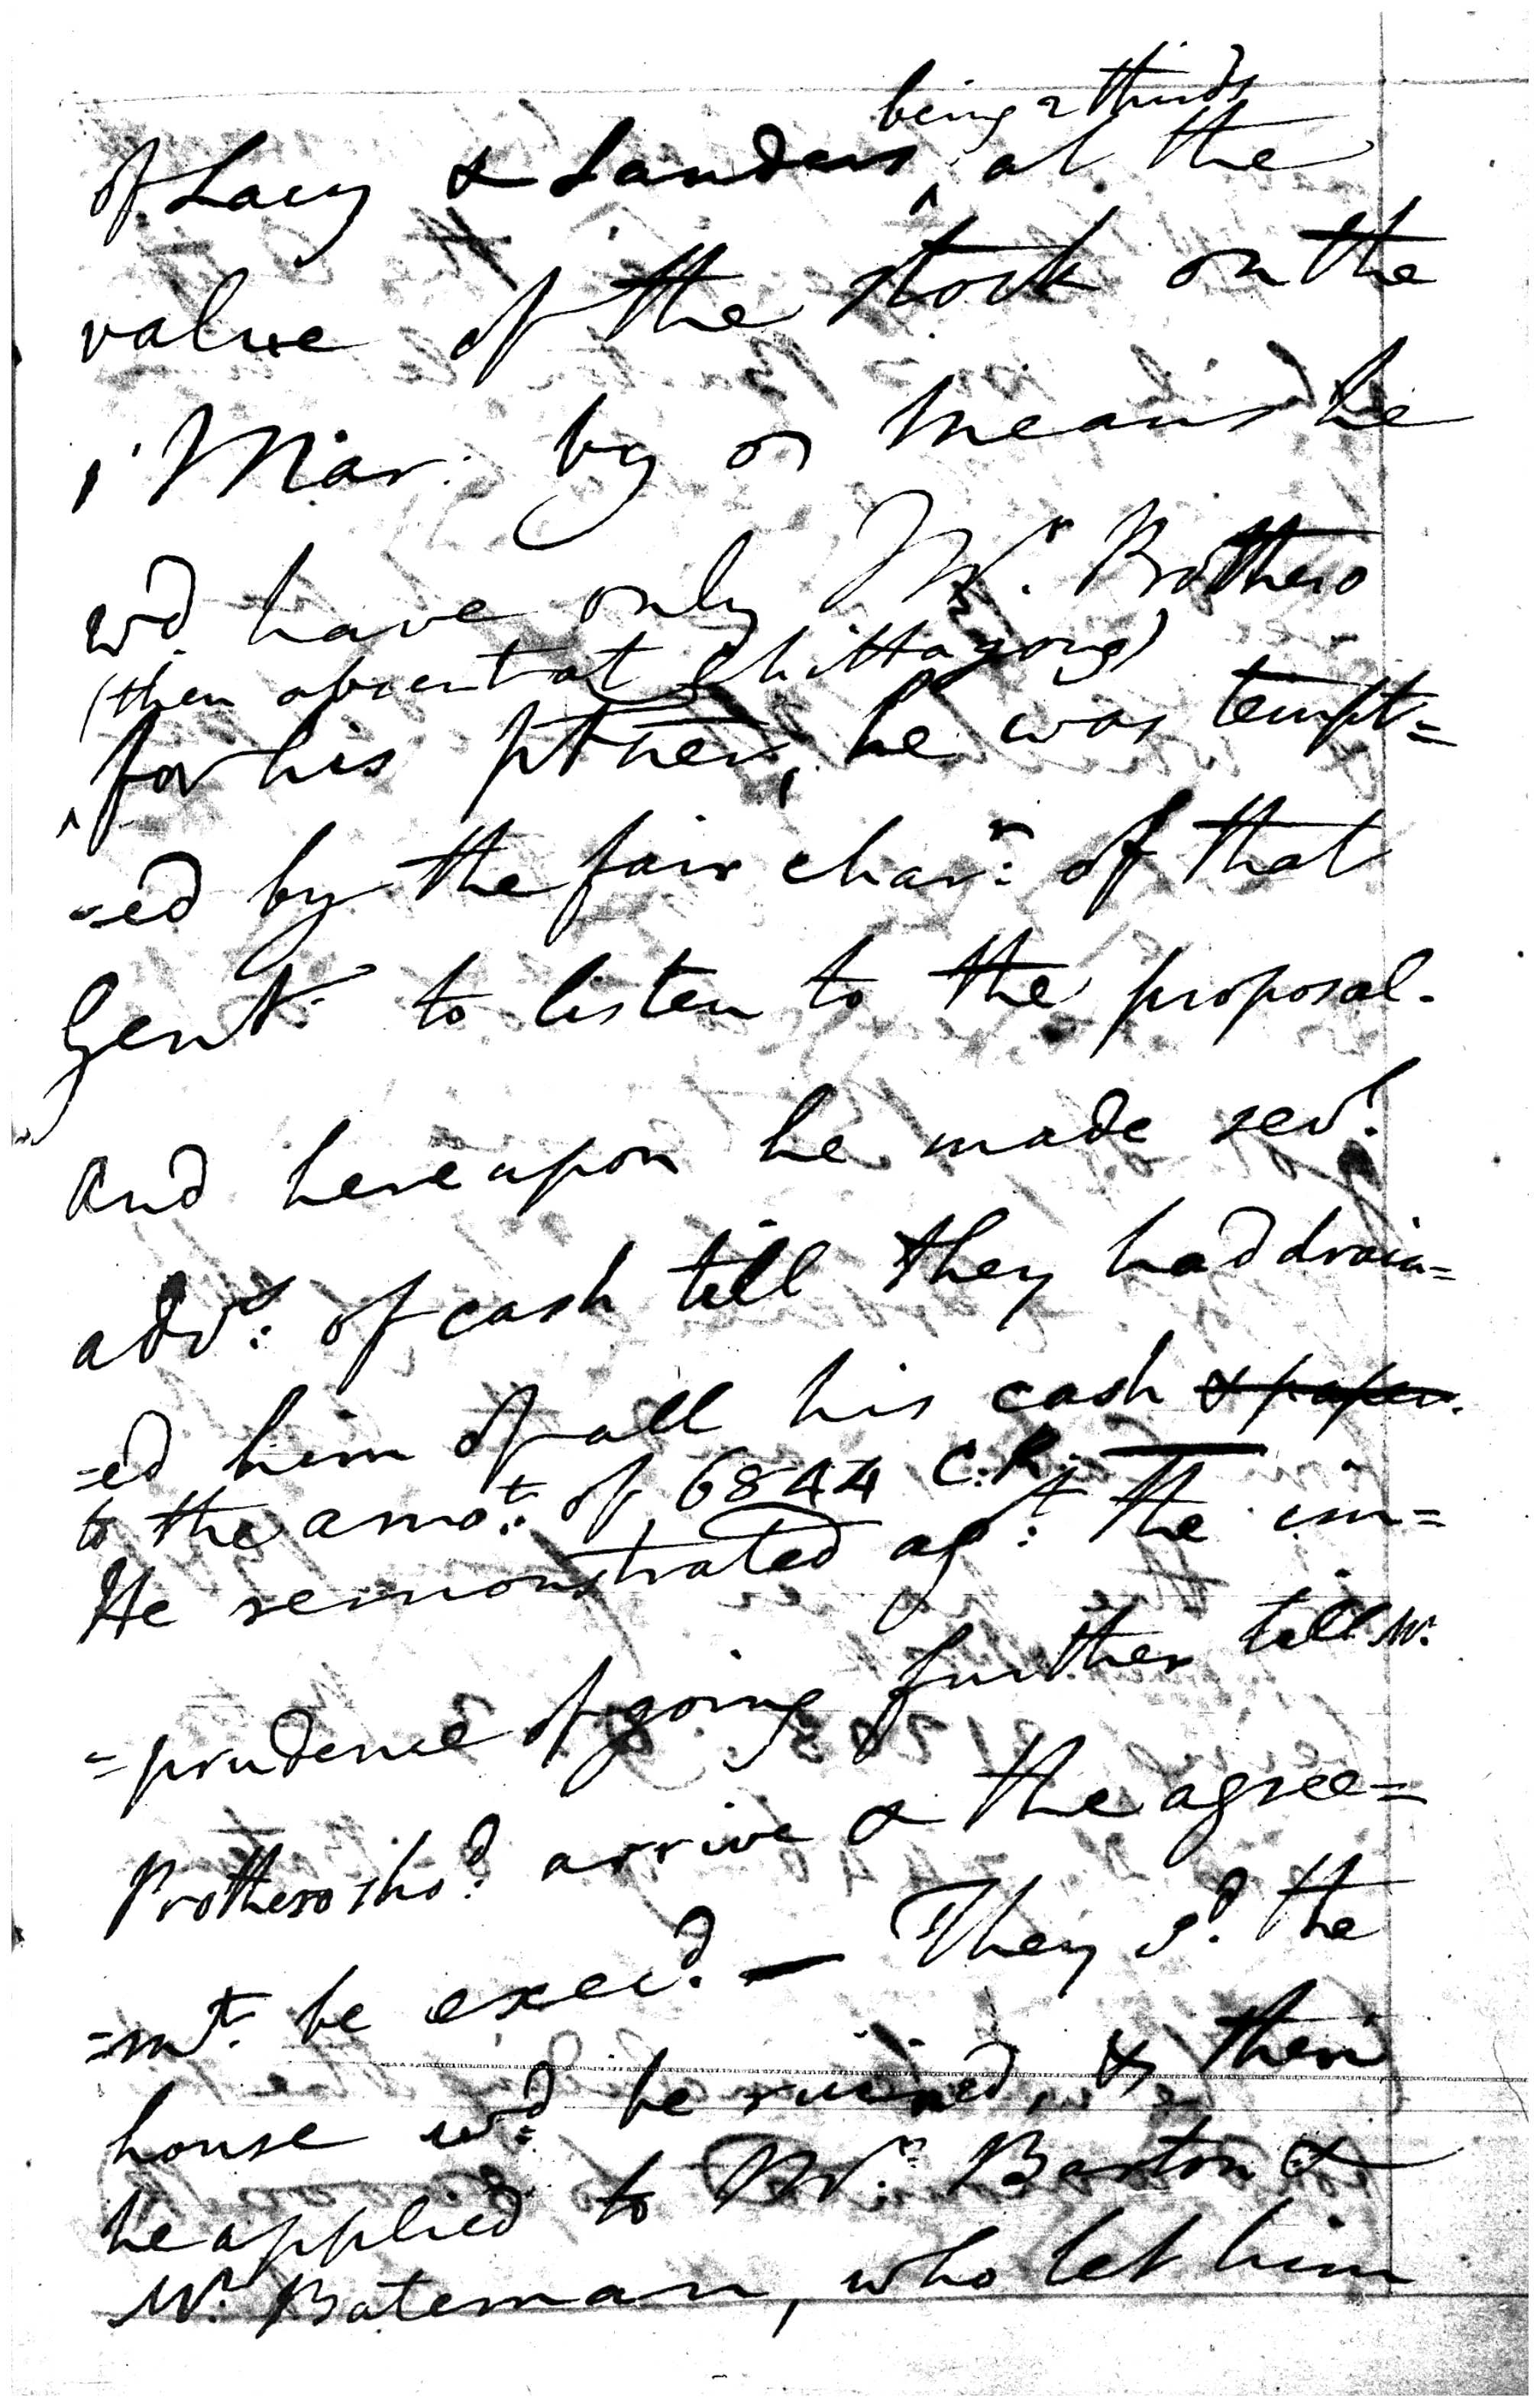 being 2 thirds
of Lacy & Sanders, at the
value of the stock on the
1 Mar. by means he
wd. have only Mr. Prothero
(then absent at Chittagong)
for his ptner, he was tempt=
=ed by the fair charr: of that
Gent. to listen to the proposal.
And hereupon he made sevl.
advs: of cash till they had drain=
=ed him of all his cash & paper.
to the amot: of 6844 C.R.
He remonstrated agt: the im=
=prudence of going further till Mr.
Prothero shod. arrive & the agree=
=mt. be execd. — They sd. the
house wd: be ruined, &
he applied to Mr. Barton &
Mr. Bateman, who let him